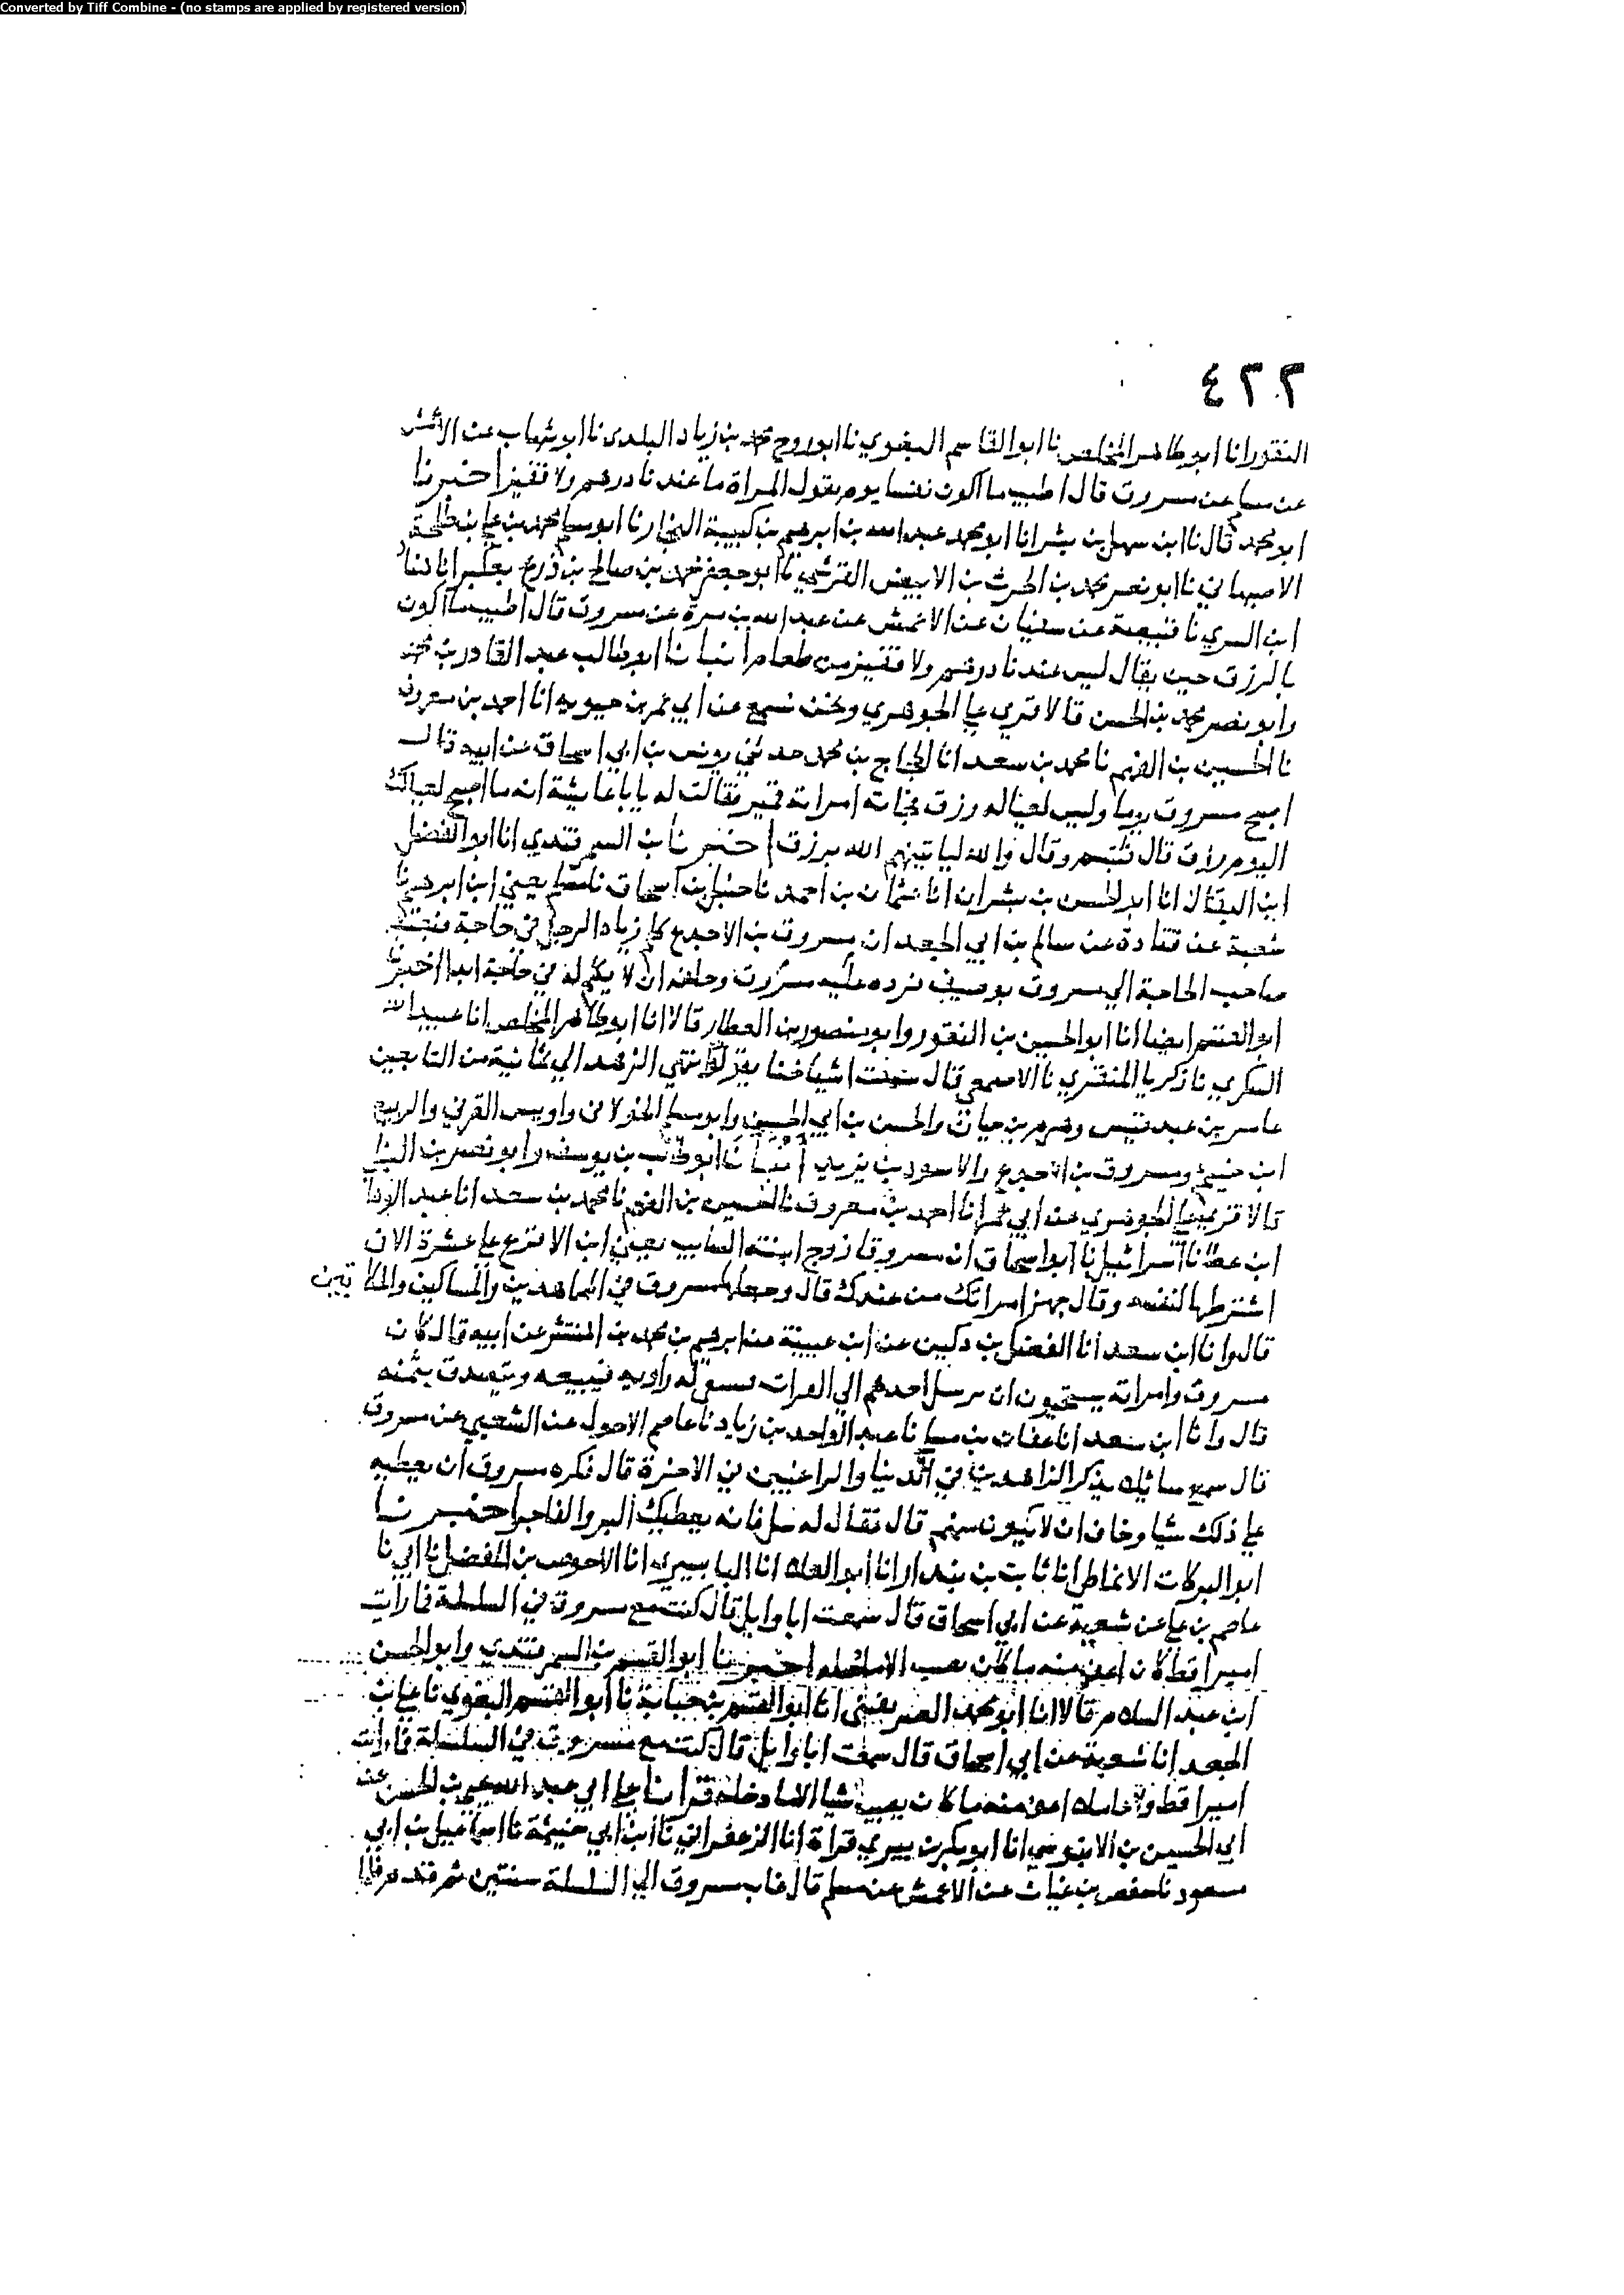 Converted by Tiff Combine - (no stamps are applied by registered version)
٤٢٢
النقور انا ابو طاهر المخلص نا ابو القاسم البغوي نا ابو روح محمد بن زياد البلدى نا ابو شهاب عن الاعمش
عن مسلم عن مسروق قال اطيب ما اكون نفسا يوم تقول المراة ما عندنا درهم ولا قفيز اخبرنا
ابو محمد قال نا ابن سهل بن بشر انا ابو محمد عبد الله بن ابرهيم بن كبيبة النجار نا ابو مسلم محمد بن علي بن طلحة
الاصبهاني نا ابو نصر محمد بن الحرث بن الابيض القرشي نا ابو جعفر محمد بن صالح بن ذريح بعكبرا نا هناد
ابن السري نا قبيصة عن سفيان عن الاعمش عن عبد الله بن مرة عن مسروق قال اطيب ما اكون
بالرزق حين يقال ليس عندنا درهم ولا قفيز من طعام انبانا ابو طالب عبد القادر بن محمد
وابو نصر محمد بن الحسن قالا قري علي الجوهري ونحن نسمع عن ابي عمر بن حيويه انا احمد بن معروف
نا الحسين بن الفهم نا محمد بن سعد انا الحجاج بن محمد حدثني يونس بن ابي اسحاق عن ابيه قال
اصبح مسروق يوما وليس لعياله رزق فجاته امراته قمير فقالت له يابا عايشة انه ما اصبح لعيالك
اليوم رزق قال فتبسم وقال والله لياتينهم الله برزق اخبرنا بن السمرقندي انا ابو الفضل
ابن البقال انا ابو الحسن بن بشران انا عثمان بن احمد نا حنبل بن اسحاق نا مسلم يعني ابن ابرهيم نا
شعبة عن قتادة عن سالم بن ابي الجعد ان مسروق بن الاجدع كلم زياد الرجل في حاجة فبعث
صاحب الحاجة الي مسروق بوصيف فرده عليه مسروق وحلف ان لا يكلم له في حاجة ابدا اخبرنا
ابو القسم ايضا انا ابو الحسين بن النقور وابو منصور بن العطار قالا انا ابو طاهر المخلص انا عبيد الله
السكري نا زكريا المنقري نا الاصمعي قال سمعت اشياخنا يقولوا انتهي الزهد الي ثمانية من التابعين
عامر بن عبد قيس وهرم بن حيان والحسن بن ابي الحسن وابو مسلم الخولاني واويس القرني والربيع
ابن خثيم ومسروق بن الاجدع والاسود بن يزيد انبانا ابو طالب بن يوسف وابو نصر بن البنا
قالا قري علي الجوهري عن ابي عمر انا احمد بن معروف نا الحسين بن الفهم نا محمد بن سعد انا عبد الوهاب
ابن عطا نا اسرائيل نا ابو اسحاق ان مسروقا زوج ابنته السايب يعني ابن الاقرع علي عشرة الاف
اشترطها لنفسه وقال جهز امراتك من عندك قال وجعلها مسروق في المجاهدين والمساكين والمكاتبين
قال وانا ابن سعد انا الفضل بن دكين عن ابن عيينة عن ابرهيم بن محمد بن المنتشر عن ابيه قال كان
مسروق وامراته يستحبون ان يرسل احدهم الي الفرات فيستقي له راويه فيبيعه ويتصدق بثمنه
قال وانا ابن سعد انا عفان بن مسلم نا عبد الواحد بن زياد نا عاصم الاحول عن الشعبي عن مسروق
قال سمع سائله يذكر الزاهدين في الدنيا والراغبين في الاخرة قال فكره مسروق ان يعطيه
علي ذلك شيا وخاف ان لا يكون منهم قال فقال له سل فانه يعطيك البر والفاجر اخبرنا
ابو البركات الانماطي انا ثابت بن بندار انا ابو العلاء انا البابسيري انا الاحوص بن المفضل نا ابي نا
عاصم بن علي عن شعبة عن ابي اسحاق قال سمعت ابا وايل قال كنت مع مسروق في السلسلة فما رايت
اميرا قط كان اعف منه ما كان يصيب الا ما دجلة اخبرنا ابو القسم بن السمرقندي وابو الحسن
ابن عبد السلام قالا انا ابو محمد الصريفيني انا ابو القسم بن حبابة نا ابو القسم البغوي نا علي بن
الجعد انا شعبة عن ابي اسحاق قال سمعت ابا وايل قال كنت مع مسروق في السلسلة فما رايت
اميرا قط ولا عاملا اعف منه ما كان يصيب شيا الا ما دجلة قرانا علي ابي عبد الله يحيي بن الحسن عن
ابي الحسين بن الابنوسي انا ابو بكر بن بيري قراة انا الزعفراني نا ابن ابي خيثمة نا اسماعيل بن ابي
مسعود نا حفص بن غياث عن الاعمش عن مسلم قال غاب مسروق الي السلسلة سنتين ثم قدم فلما